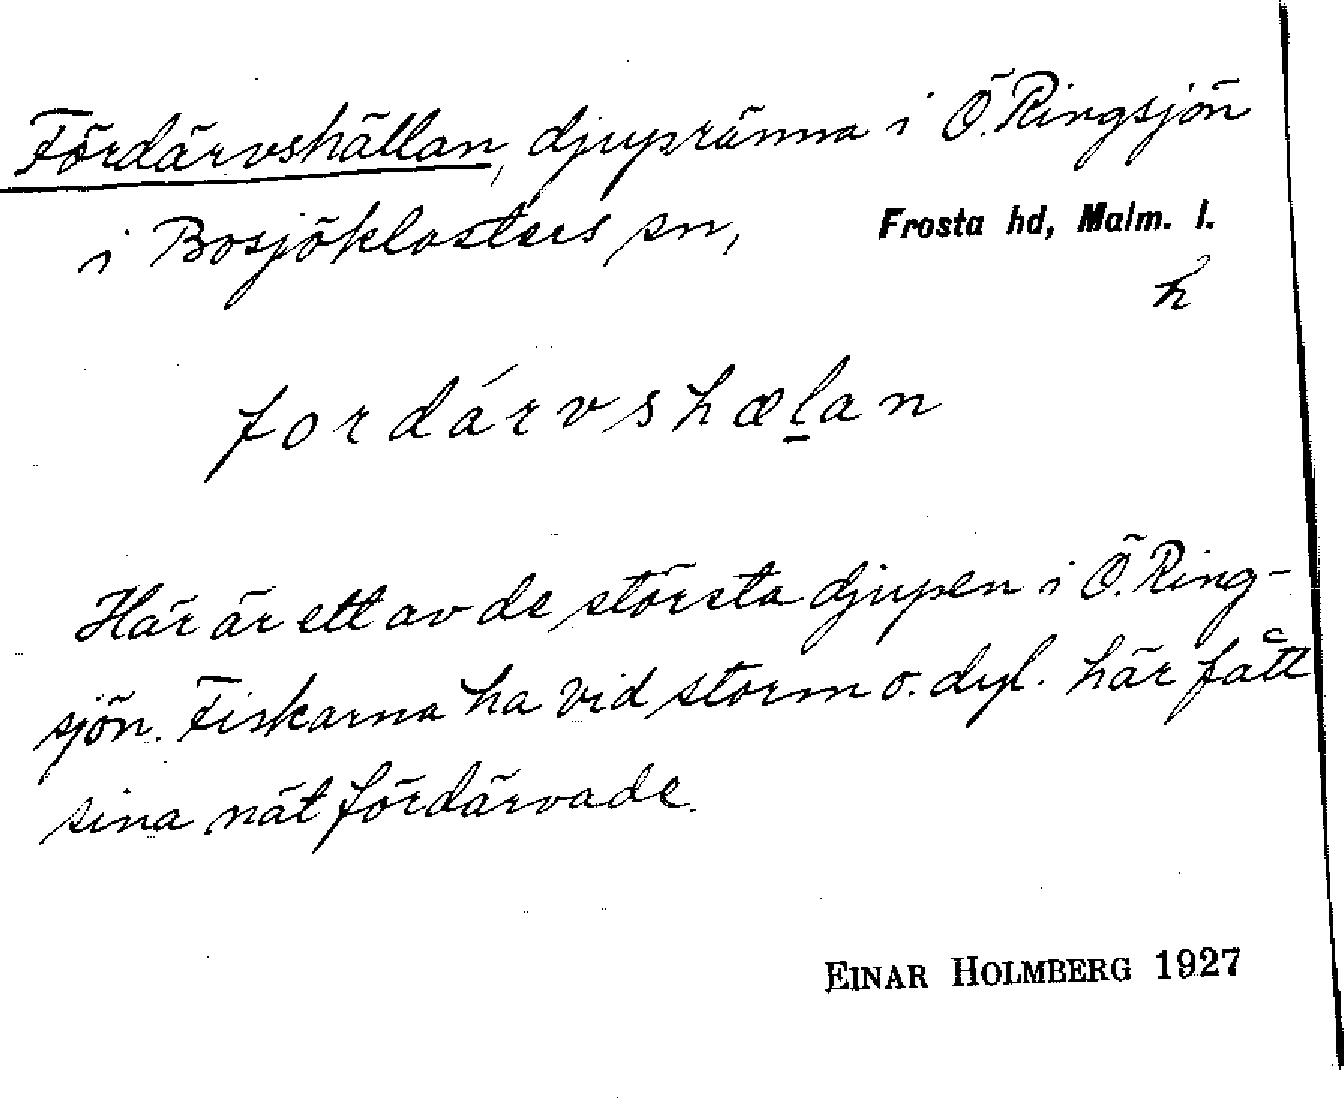 Fördärvshällan, djupränna i Ö. Ringsjön
i Bosjöklosters sn, Frosta hd, Malm. l.
h
fordárvshælan
Här är ett av de största djupen i Ö. Ring-
sjön. Fiskarna ha vid storm o. dyl. här fått
sina nät fördärvade.
EINAR HOLMBERG 1927